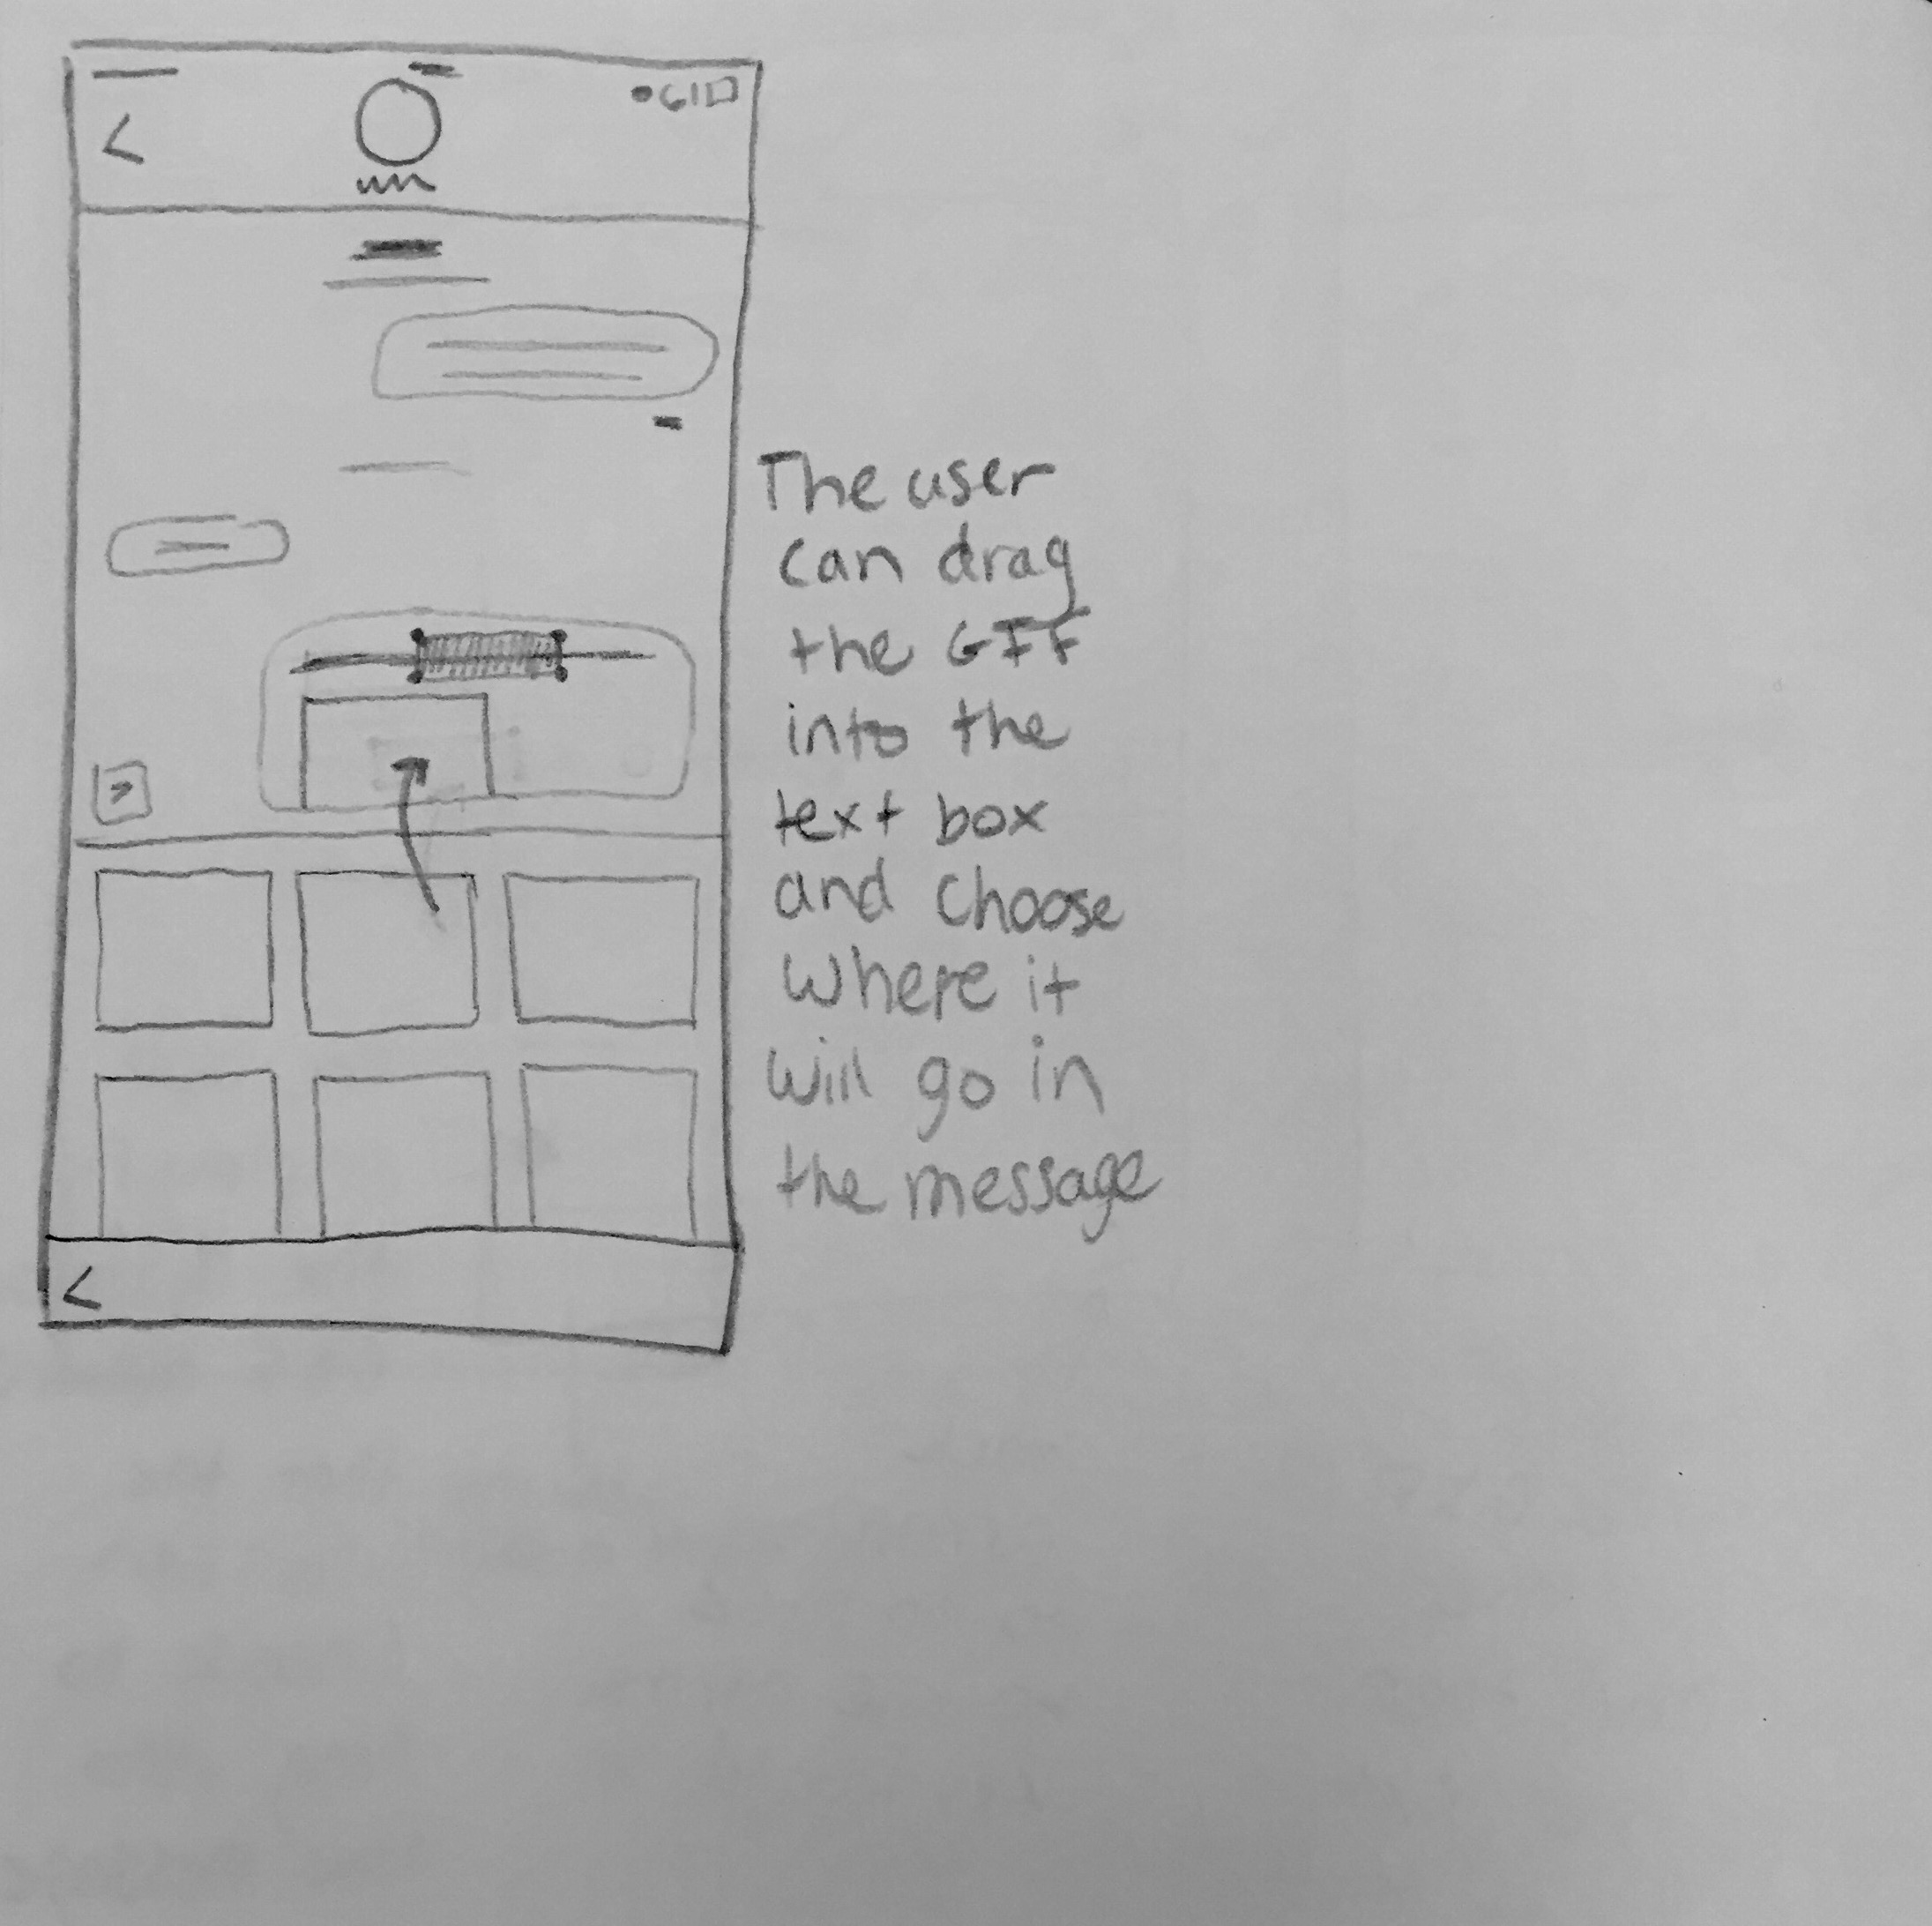 The user
can drag
the GIF
into the
text box
and choose
where it
will go in
the message